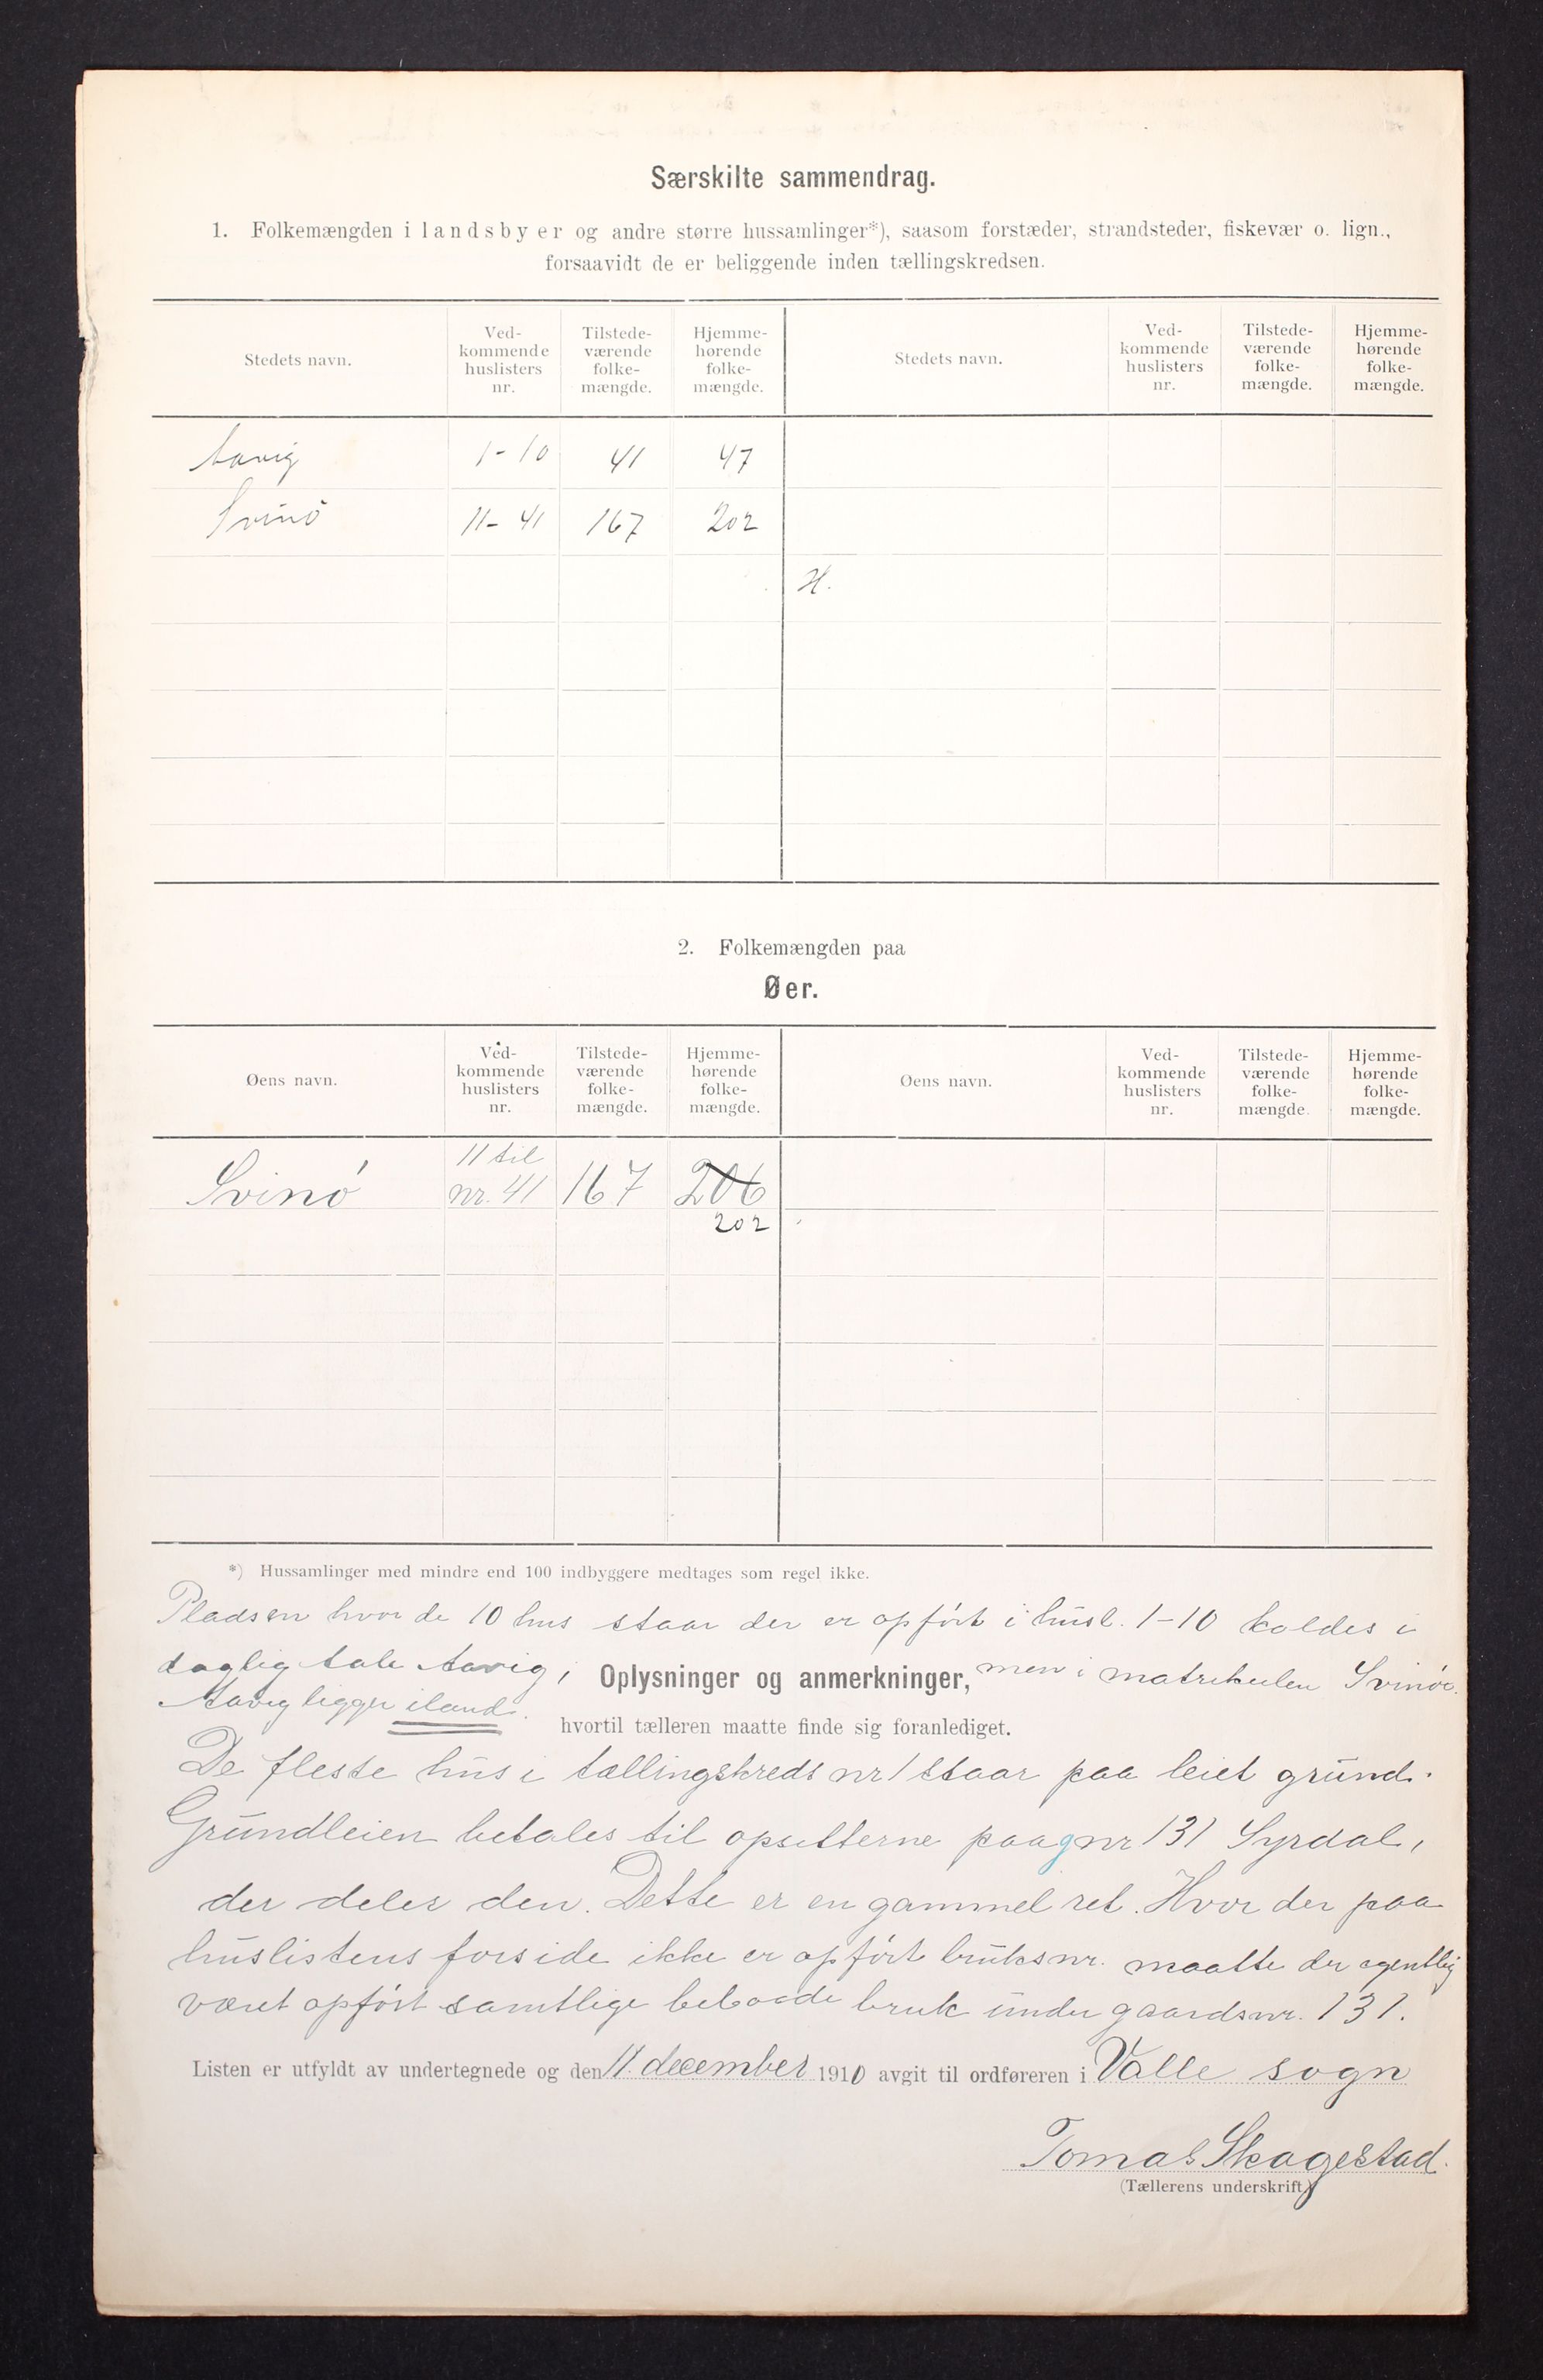 Særskilte sammendrag.
1. Folkemængden i landsbyer og andre større hussamlinger*), saasom forstæder, strandsteder, fiskevær o. lign.,
forsaavidt de er beliggende inden tællingskredsen.
Stedets navn. Ved-kommende huslisters nr. Tilstede-værende folke-mængde. Hjemme-hørende folke-mængde. Stedets navn. Ved-kommende huslisters nr. Tilstede-værende folke-mængde. Hjemme-hørende folke-mængde.
Aavig 1-10 41 47
Svinö 11-41 167 202
H.
2. Folkemængden paa
Øer.
Øens navn. Ved-kommende huslisters nr. Tilstede-værende folke-mængde. Hjemme-hørende folke-mængde. Øens navn. Ved-kommende huslisters nr. Tilstede-værende folke-mængde. Hjemme-hørende folke-mængde.
11 til
Svinö nr. 41 167 206
202
*) Hussamlinger med mindre end 100 indbyggere medtages som regel ikke.
Pladsen hvor de 10 hus staar der er opført i husl. 1-10 kaldes i
daglig tale Aavig, Oplysninger og anmerkninger, men i matrikulen Svinöe.
Aavig ligger iland.
hvortil tælleren maatte finde sig foranlediget.
De fleste hus i tællingskreds nr 1 staar paa leiet grund.
Grundleien betales til opsitterne paa gnr 131 Syrdal,
der deler den. Dette er en gammel ret. Hvor der paa
huslistens forside ikke er opført bruksnr. maatte der egentlig
været opført samtlige beboede bruk under gaardsnr. 131.
Listen er utfyldt av undertegnede og den 11. december 1910 avgit til ordføreren i Valle sogn
Tomas Skagestad.
(Tællerens underskrift)